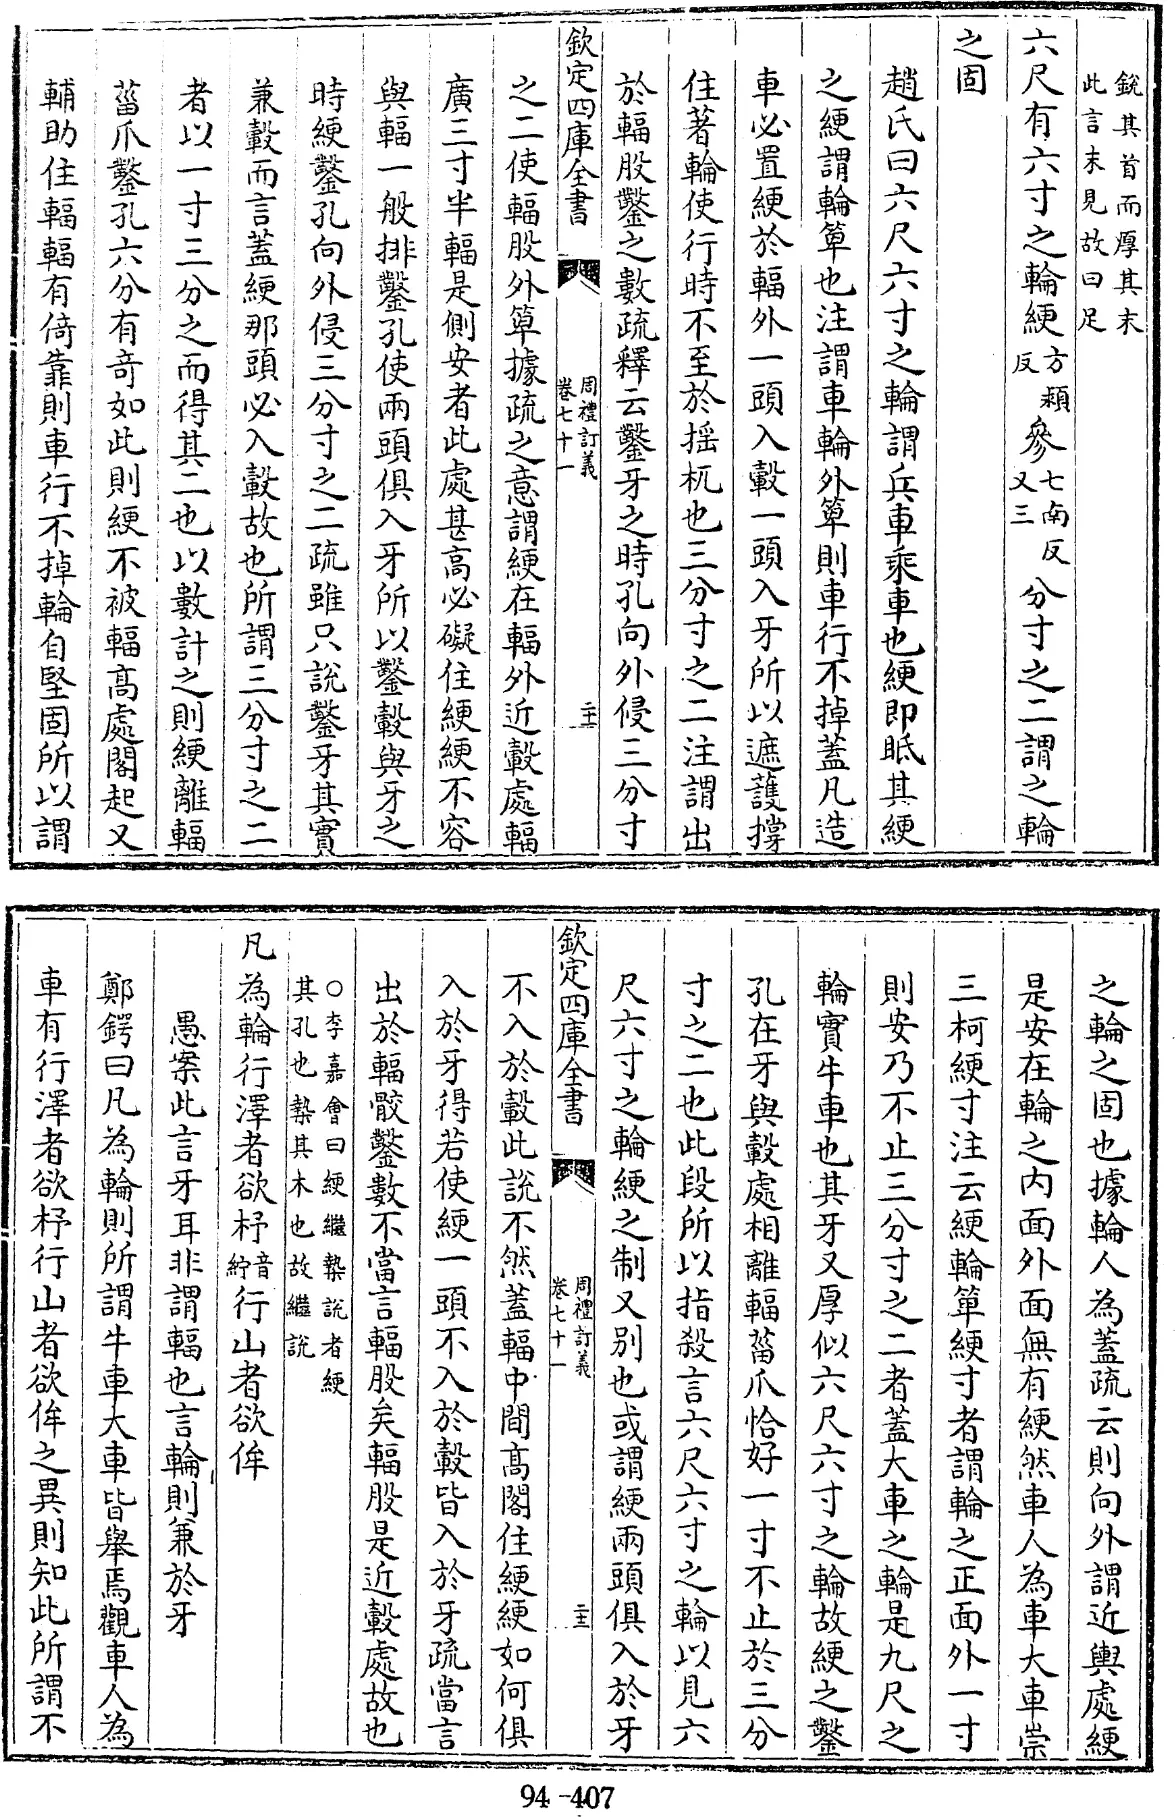 銳其首而厚其末
此言末見故曰足
六尺有六寸之輪綆方潁反參七南反又三分寸之二謂之輪
之固
趙氏曰六尺六寸之輪謂兵車乘車也綆即眡其綆
之綆謂輪箄也注謂車輪外箄則車行不掉蓋凡造
車必置綆於輻外一頭入轂一頭入牙所以遮護撐
住著輪使行時不至於揺杌也三分寸之二注謂出
於輻股鑿之數疏釋云鑿牙之時孔向外侵三分寸
欽定四庫全書
周禮訂義
卷七十一
二十二
之二使輻股外箄據疏之意謂綆在輻外近轂處輻
廣三寸半輻是側安者此處甚高必礙住綆綆不容
與輻一般排鑿孔使兩頭俱入牙所以鑿轂與牙之
時綆鑿孔向外侵三分寸之二疏雖只說鑿牙其實
兼轂而言蓋綆那頭必入轂故也所謂三分寸之二
者以一寸三分之而得其二也以數計之則綆離輻
菑爪鑿孔六分有竒如此則綆不被輻髙處閣起又
輔助住輻輻有倚靠則車行不掉輪自堅固所以謂
之輪之固也據輪人為蓋疏云則向外謂近輿處綆
是安在輪之内面外面無有綆然車人為車大車崇
三柯綆寸注云綆輪箄綆寸者謂輪之正面外一寸
則安乃不止三分寸之二者蓋大車之輪是九尺之
輪實牛車也其牙又厚似六尺六寸之輪故綆之鑿
孔在牙與轂處相離輻菑爪恰好一寸不止於三分
寸之二也此段所以指殺言六尺六寸之輪以見六
尺六寸之輪綆之制又别也或謂綆兩頭俱入於牙
欽定四庫全書
周禮訂義
卷七十一
二十二
不入於轂此說不然蓋輻中間髙閣住綆綆如何俱
入於牙得若使綆一頭不入於轂皆入於牙疏當言
出於輻骹鑿數不當言輻股矣輻股是近轂處故也
○李嘉會曰綆繼槷說者綆
其孔也槷其木也故繼說
凡為輪行澤者欲杼音紵行山者欲侔
愚案此言牙耳非謂輻也言輪則兼於牙
鄭鍔曰凡為輪則所謂牛車大車皆舉焉觀車人為
車有行澤者欲杼行山者欲侔之異則知此所謂不
94-407